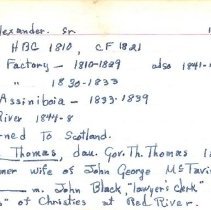 lexander. Sr. 1
HBC 1810, CF 1821
Factory - 1810-1829 also 1841-
" 1830-1833
Assiniboia - 1833-1839
River 1844-8
rned To Scotland.
Thomas, dau. Gov. Th. Thomas 1
mer wife of John George McTavi
m. John Black, "lawyers clerk"
" of Christies at Red River.